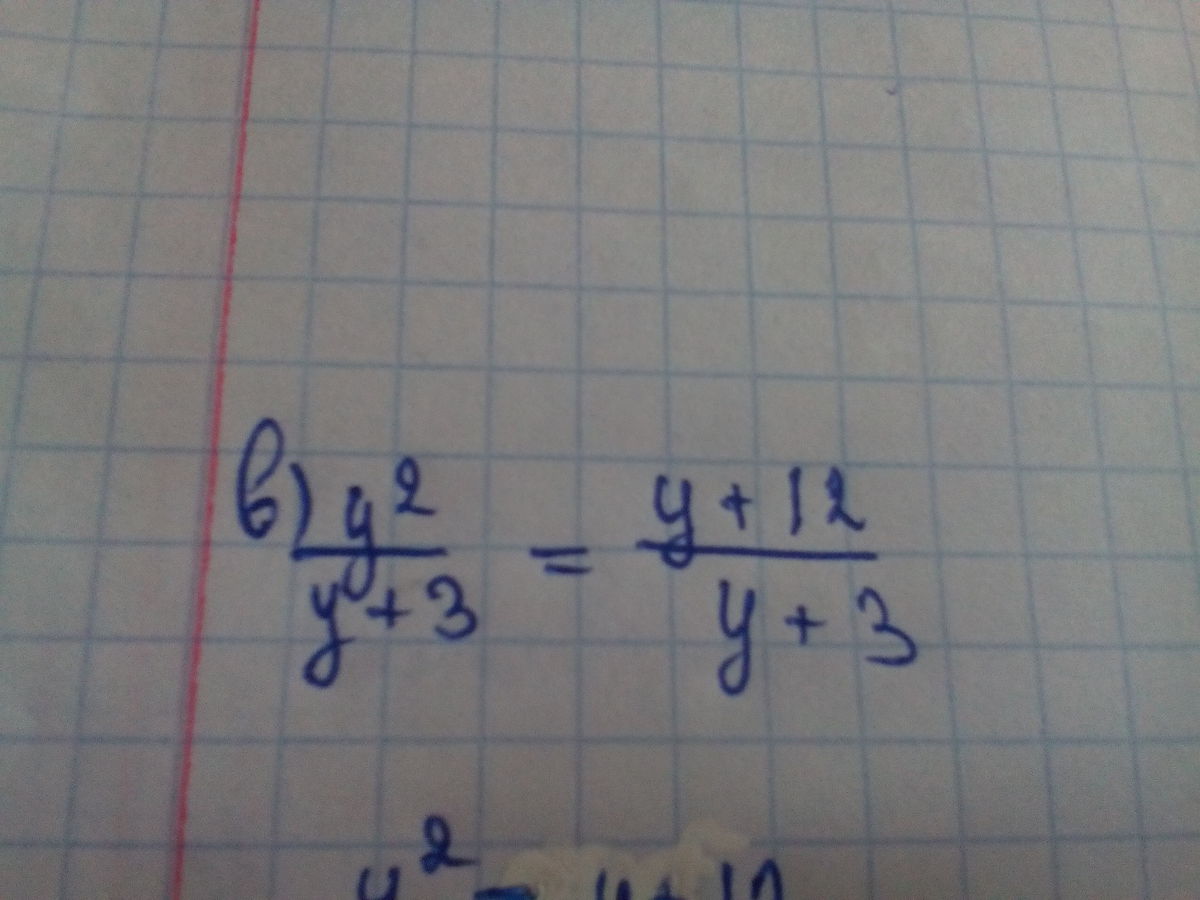 в) y² / y + 3 = y + 12 / y + 3
y² =